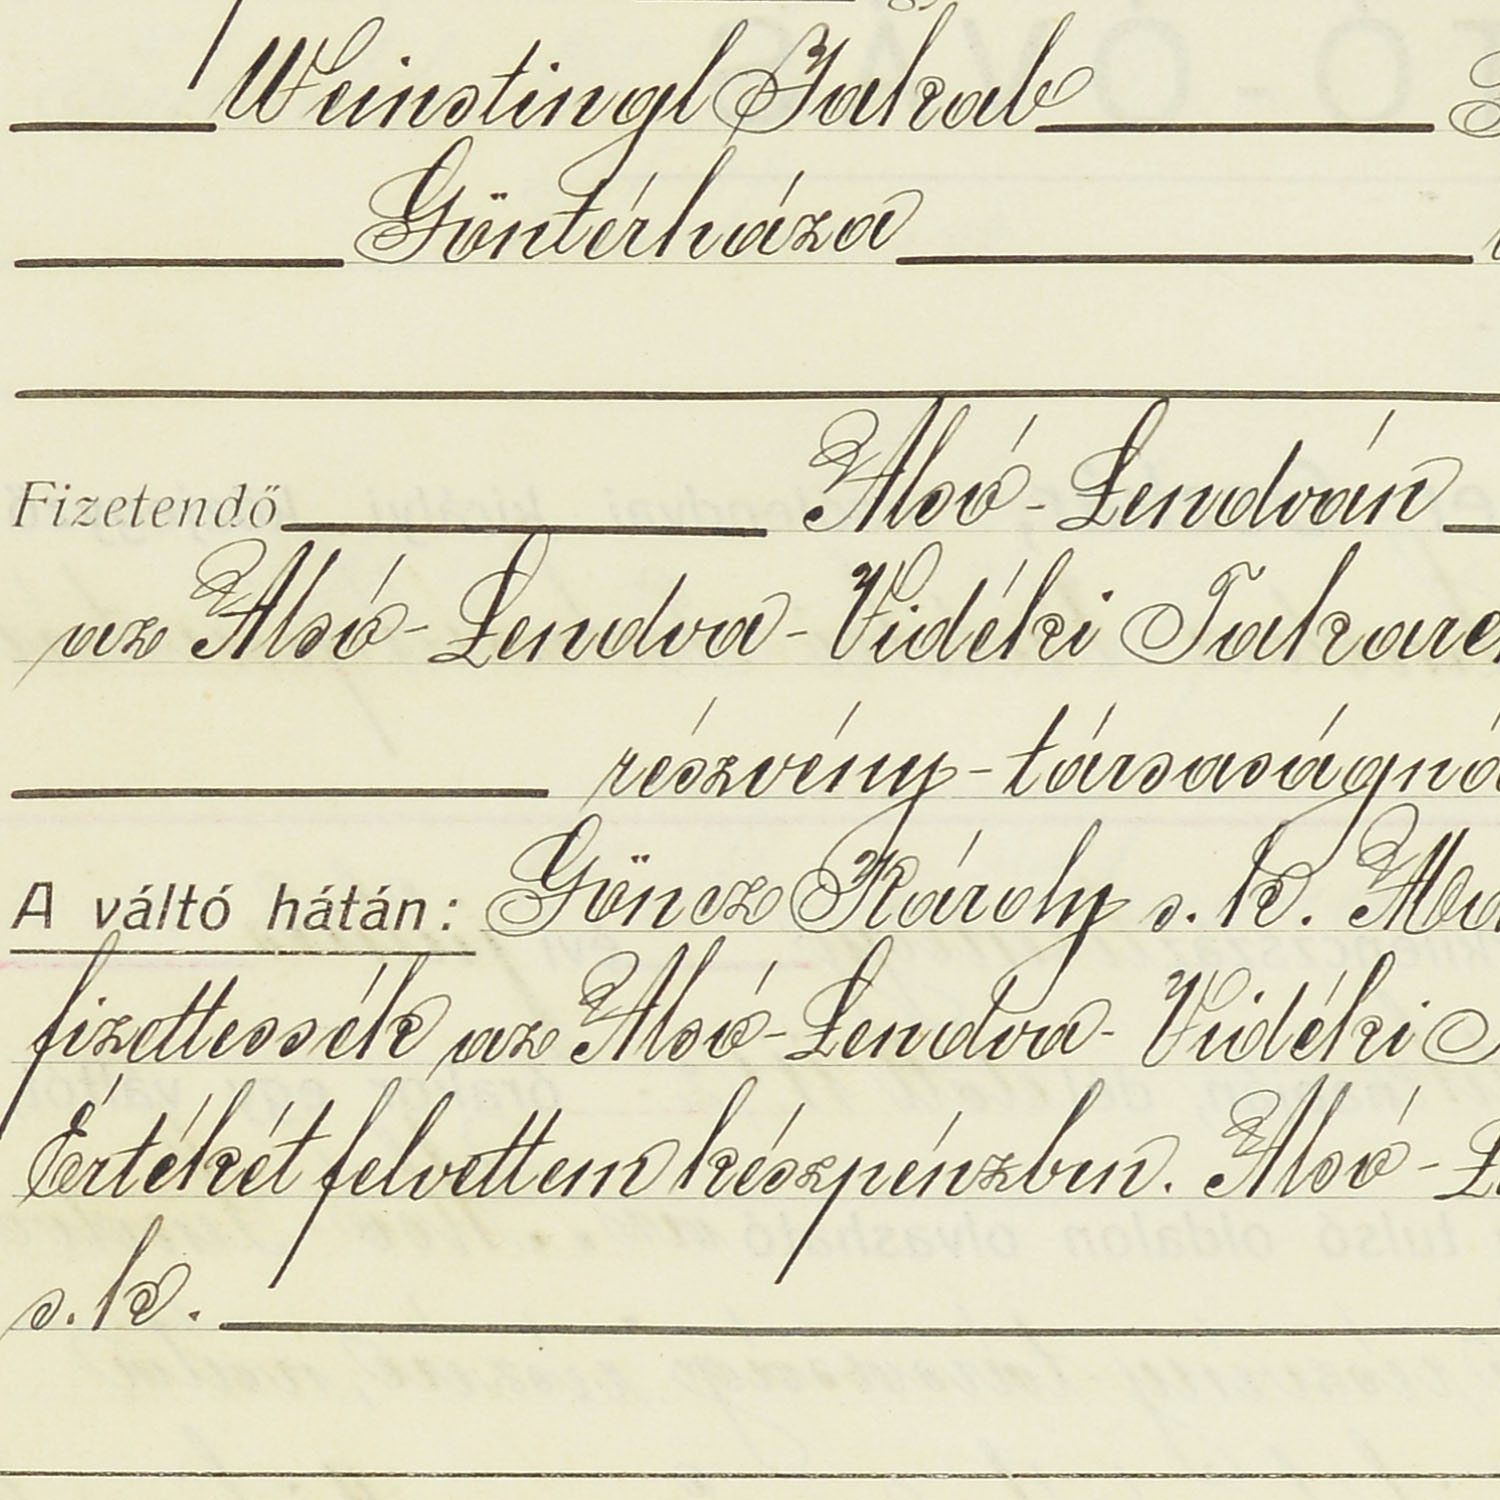 Weinstingl Jakab
Göntérháza
Fizetendő Alsó-Lendván
az Alsó-Lendva-Vidéki Takaré
részvény-társaságná
A váltó hátán: Göncz Károly s. k.
fizettessék az Alsó-Lendva-Vidéki
Értékét felvettem készpénzben. Alsó-L
s. k.